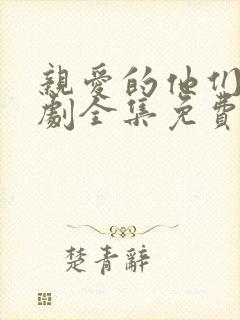 親愛的他们
劇全集免費
楚青辭